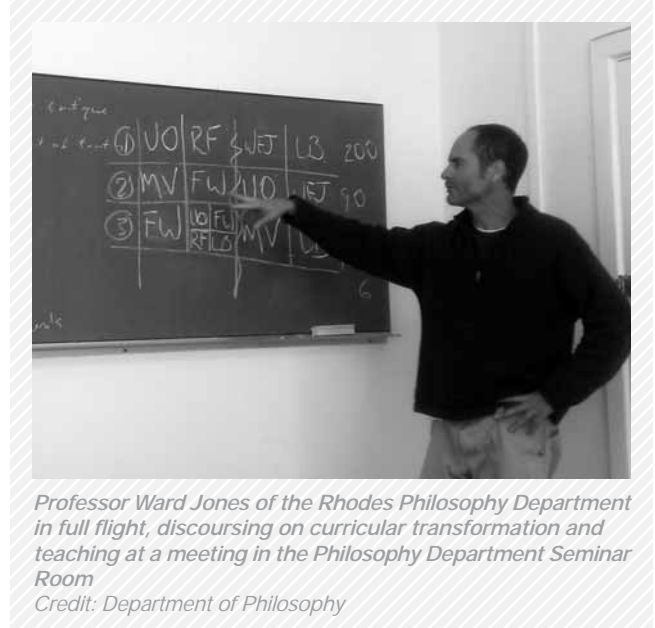 ① UO RF WEJ LB 200
② MV FW UO WEJ 90
③ FW UO FW MV
RF LB
6
Professor Ward Jones of the Rhodes Philosophy Department
in full flight, discoursing on curricular transformation and
teaching at a meeting in the Philosophy Department Seminar
Room
Credit: Department of Philosophy